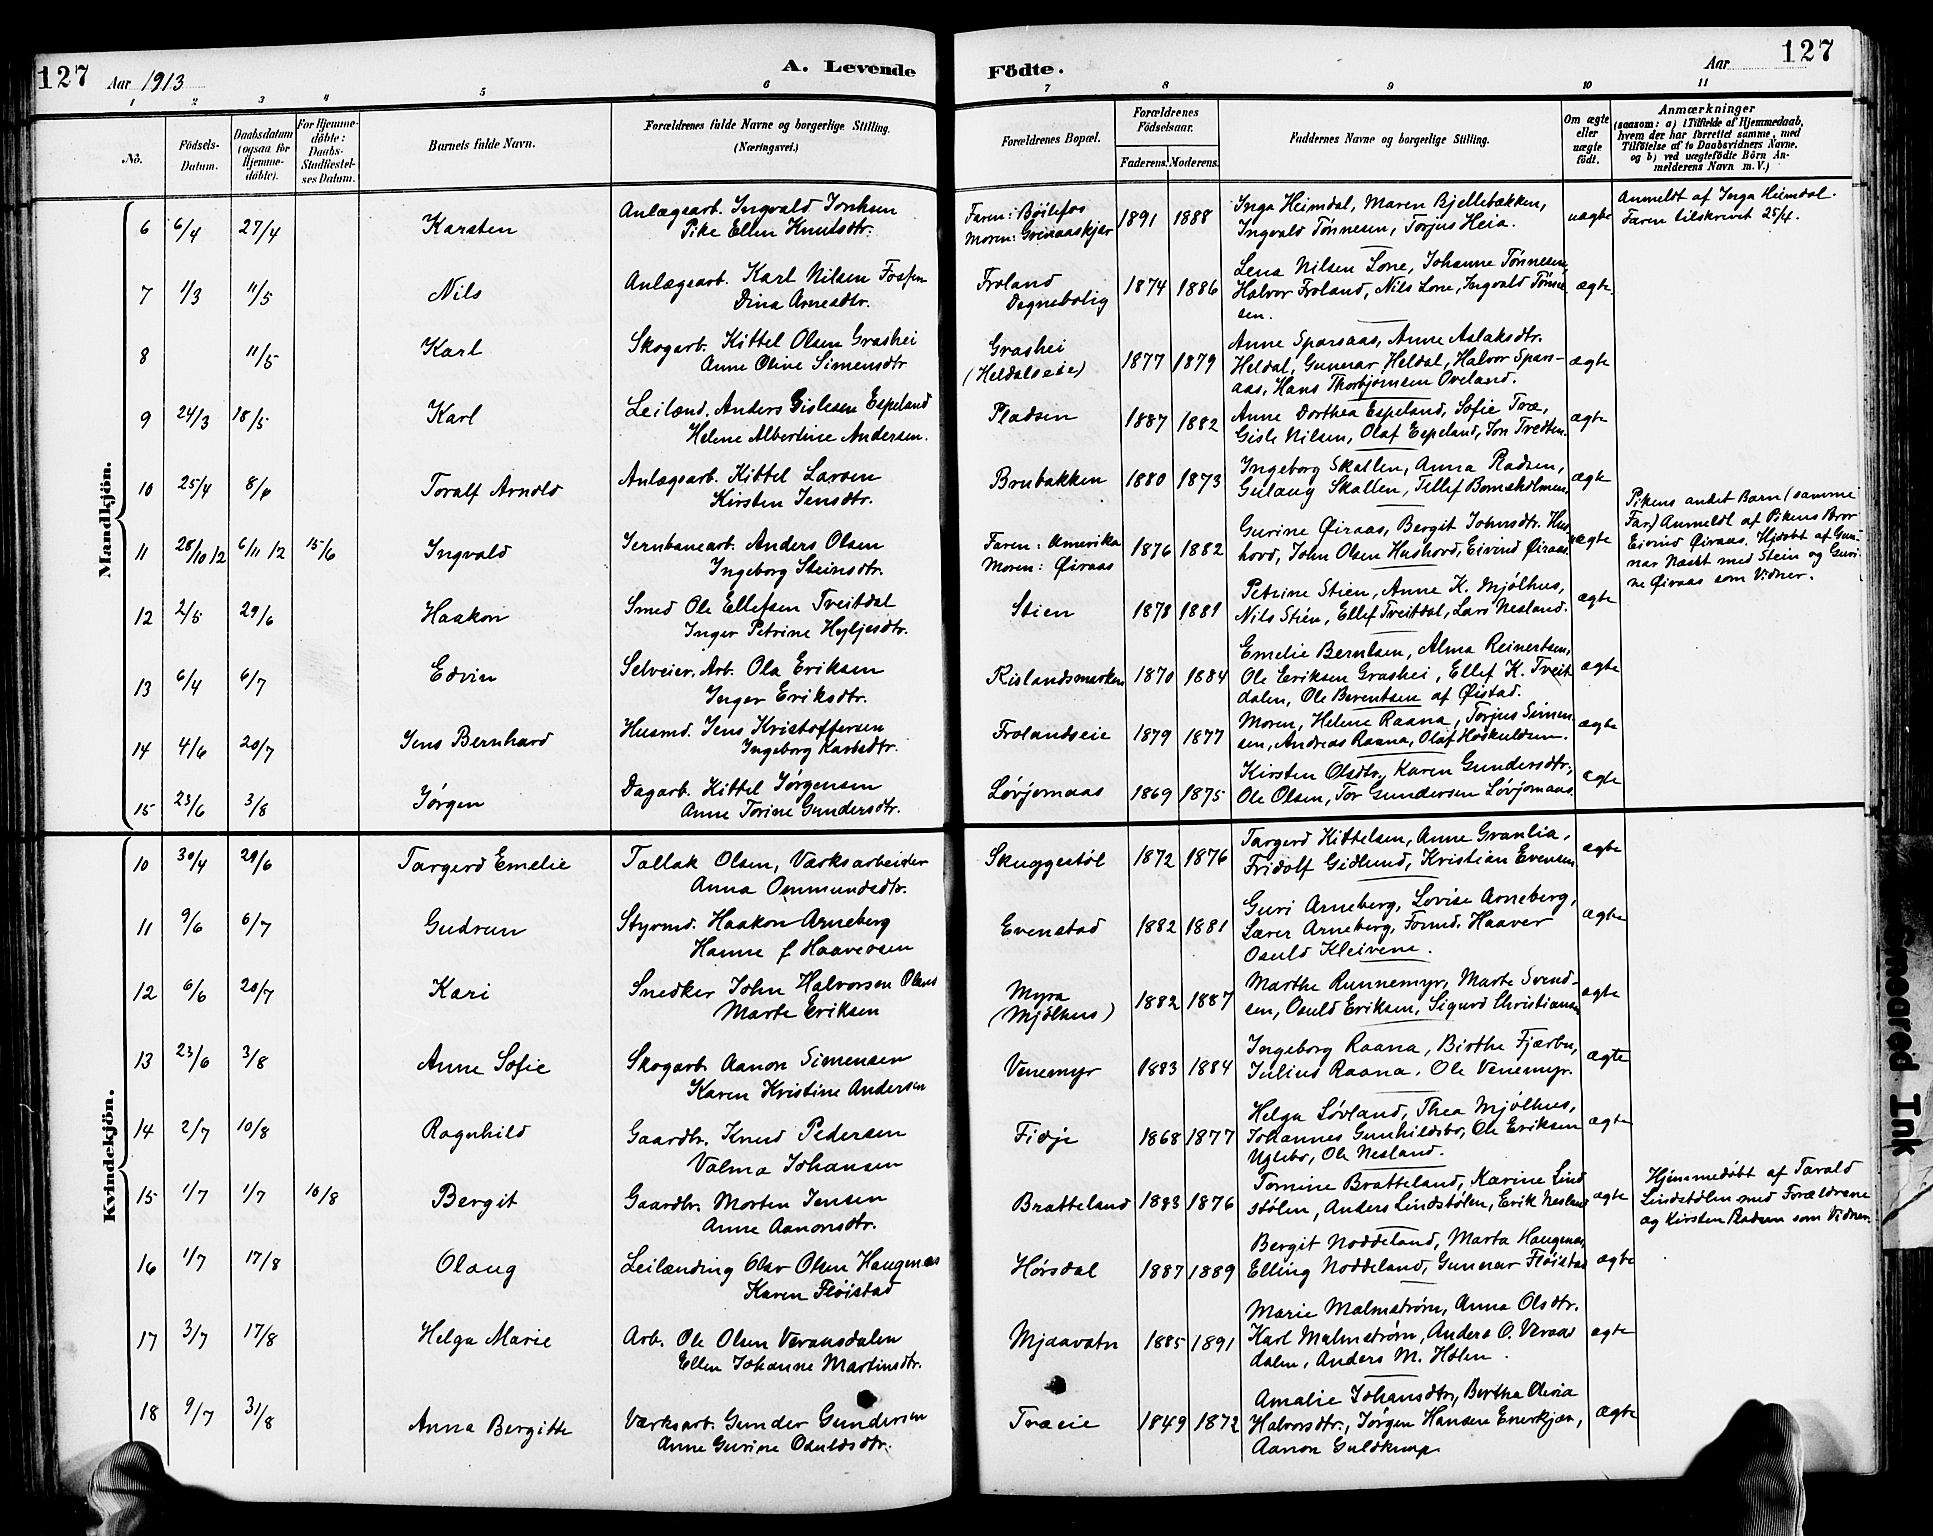 127
Aar 1913
A. Levende
Födte.
Aar
127
1
2
3
4
5
6
7
8
9
10
11
No.
Födsels-
Datum.
Daabsdatum
(ogsaa for
Hjemme-
döbte).
For Hjemme-
döbte:
Daabs-
Stadfæstel-
ses Datum.
Barnets fulde Navn.
Forældrenes fulde Navne og borgerlige Stilling.
(Næringsvei.)
Forældrenes Bopæl.
Forældrenes
Födselsaar.
Faderens.
Moderens.
Faddernes Navne og borgerlige Stilling.
Om ægte
eller
uægte
födt.
Anmærkninger
(saasom: a) i Tilfælde af Hjemmedaab,
hvem der har forrettet samme, med
Tilföielse af to Daabsvidners Navne,
og b) ved uægtefödte Börn An-
melderens Navn m. V.)
Mandkjön.
6 6/4 27/4 Karsten
Anlægsarb. Ingvald
Pike Ellen Knutsdtr.
Faren: Bøilefos
Moren:
1891 1888
Inga Heimdal, Maren Bjellebækken,
Ingvald Tønnesen, Torjus Heia.
uægte
Anmeldt af Inga Heimdal.
Faren tilskrivet 25/4.
7 1/3 11/5 Nils
Anlægsarb. Karl Nilsen Fossen
Dina Arnesdtr.
Froland
Dagnebolig
1874 1886
Lena Nilsen Lone, Johanne Tønnesen,
Halvor Froland, Nils Lone, Ingvald Tønne
sen.
ægte
8 11/5 Karl
Skogarb. Kittel Olsen Grashei
Anne Olive Simensdtr
Grashei
(Heldalseie)
1877 1879
Anne Sparsaas, Anne Aslaksdtr.
Heldal, Gunnar Heldal, Halvor Spars-
aas, Hans Thorbjørnsen Oveland.
ægte
9 24/3 18/5 Karl
Leilænd. Anders Gislesen Espeland
Helene Albertine Andersen.
Pladsen
1887 1882
Anne Dorthea Espeland, Sofie Træ,
Gisle Nilsen, Olaf Espeland, Jon Tvedten.
ægte
10 25/4 8/6 Toralf Arnold
Anlægsarb. Kittel Larsen
Kirsten Jensdtr.
Brubakken
1880 1873
Ingeborg Skallen, Anna Pladsen,
Gulaug Skallen, Tellef Bomsholmen
ægte
11 28/10 12 6/11 12 15/6 Ingvald
Jernbanearb. Anders Olsen
Ingeborg Steinsdtr.
Faren: Amerika
Moren: Øiraas
1876 1882
Gurine Øiraas, Bergit Johnsdtr. Hus
hovd, John Olsen Hushovd, Eivind Øiraas
uægte
Pikens andet Barn (samme
Far) Anmeldt af Pikens Bror
Eivind Øiraas. Hjdøbt af Gun-
nar Næset med Stein og Guri-
ne Øiraas som Vidner.
12 2/5 29/6 Haakon
Smed Ole Ellefsen Tveitdal
Inger Petrine Hyljesdtr.
Stien
1878 1881
Petrine Stien, Anne K. Mjølhus,
Nils Stien, Ellef Tveitdal, Lars Nesland.
ægte
13 6/4 6/7 Edvin
Selveier. Arb. Ola Eriksen
Inger Eriksdtr.
Rislandsmarken
1870 1884
Emelie Berntsen, Alma Reinertsen,
Ole Eriksen Grashei, Ellef K. Tveit
dalen, Ole Berentsen af Øistad.
ægte
14 4/6 20/7 Jens Bernhard
Husmd. Jens Kristoffersen
Ingeborg Karlsdtr.
Frolandseie
1879 1877
Moren, Helene Raana, Torjus Simen
sen, Andreas Raana, Olaf Høskuldsen.
ægte
15 23/6 3/8 Jørgen
Dagarb. Kittel Jørgensen
Anne Torine Gundersdtr.
Løvjomaas
1869 1875
Kirsten Olsdtr., Karen Gundersdtr.,
Ole Olsen, Tor Gundersen Løvjomaas.
ægte
Kvindekjön.
10 30/4 29/6 Targerd Emelie
Tallak Olsen, Værksarbeider
Anna Ommundsdtr.
Skuggestøl
1872 1876
Targerd Kittelsen, Anne Granlia,
Fridolf Gidlund, Kristian Evensen
ægte
11 9/6 6/7 Gudrun
Styrmd. Haakon Arneberg
Hanne f Haaversen
Evenstad
1882 1881
Guri Arneberg, Lovise Arneberg,
Lærer Arneberg, Formd. Haaver
Osuld Kleivene.
ægte
12 6/6 20/7 Kari
Snedker John Halvorsen Øland
Marte Eriksen
Myra
(Mjølhus)
1882 1887
Marthe Runnemyr, Marte Svend-
sen, Osuld Eriksen, Sigurd Christiansen
ægte
13 23/6 3/8 Anne Sofie
Skogarb. Aanon Simensen
Karen Kristine Andersen
Venemyr
1883 1884
Ingeborg Raana, Birthe Fjærbu,
Julius Raana, Ole Venemyr.
ægte
14 2/7 10/8 Ragnhild
Gaardbr. Knud Pedersen
Valma Johansen
Fidje
1868 1877
Helga Løvland, Thea Mjølhus,
Johannes Gunhildsbo, Ole Eriksen
Uglebo, Ole Nesland.
ægte
15 1/7 1/7 10/8 Bergit
Gaardbr. Morten Jensen
Anne Aanonsdtr.
Bratteland
1883 1876
Tomine Bratteland, Karine Lind
stølen, Anders Lindstølen, Erik Nesland
ægte
Hjemmedøbt af Tarald
Lindstølen med Forældrene
og Kirsten Pladsen som Vidner.
16 1/7 17/8 Olaug
Leilænding Olav Olsen Haugenæs
Karen Fløistad
Hørsdal
1887 1889
Bergit Noddeland, Marta Haugenæs,
Elling Noddeland, Gunnar Fløistad
ægte
17 3/7 17/8 Helga Marie
Arb. Ole Olsen Veraasdalen
Ellen Johanne Martinsdtr.
Mjaavatn
1885 1891
Marie Malmstrøm, Anna Olsdtr.
Karl Malmstrøm, Anders O. Veraas
dalen, Anders M. Holen.
ægte
18 9/7 31/8 Anna Bergitte
Værksarb. Gunder Gundersen
Anne Gurine Osuldsdtr.
Træeie
1849 1872
Amalie Johansdtr., Bertha Olivia
Halvorsdtr., Jørgen Hansen Enerkjær,
Aanon Guldkrup
ægte
Smeared Ink